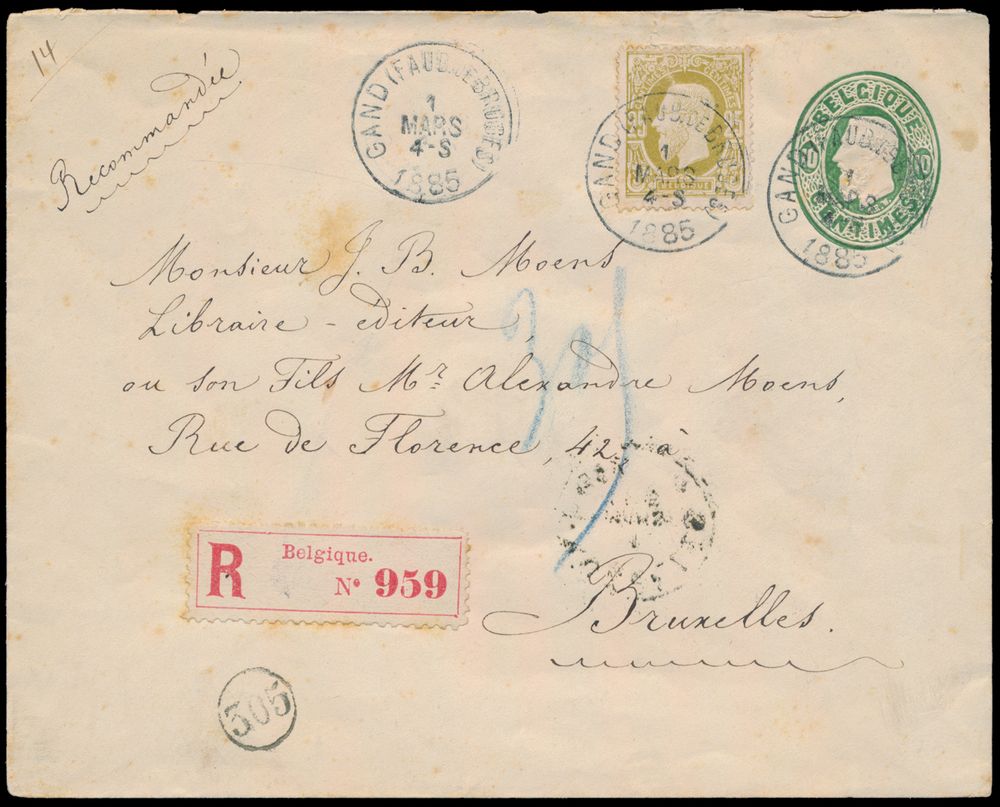 14
Recommandée
GAND (FAUB. DE BRUGES)
1
MARS
4-S
1885
25 CENTIMES
BELGIQUE
GAND (FAUB. DE BRUGES)
1
MARS
4-S
1885
BELGIQUE
10 CENTIMES 10
GAND (FAUB. DE
1
MARS
1885
Monsieur J. B. Moens
Libraire - éditeur,
ou son Fils Mr Alexandre Moens,
Rue de Florence, 42, à
Bruxelles.
R Belgique.
No 959
305